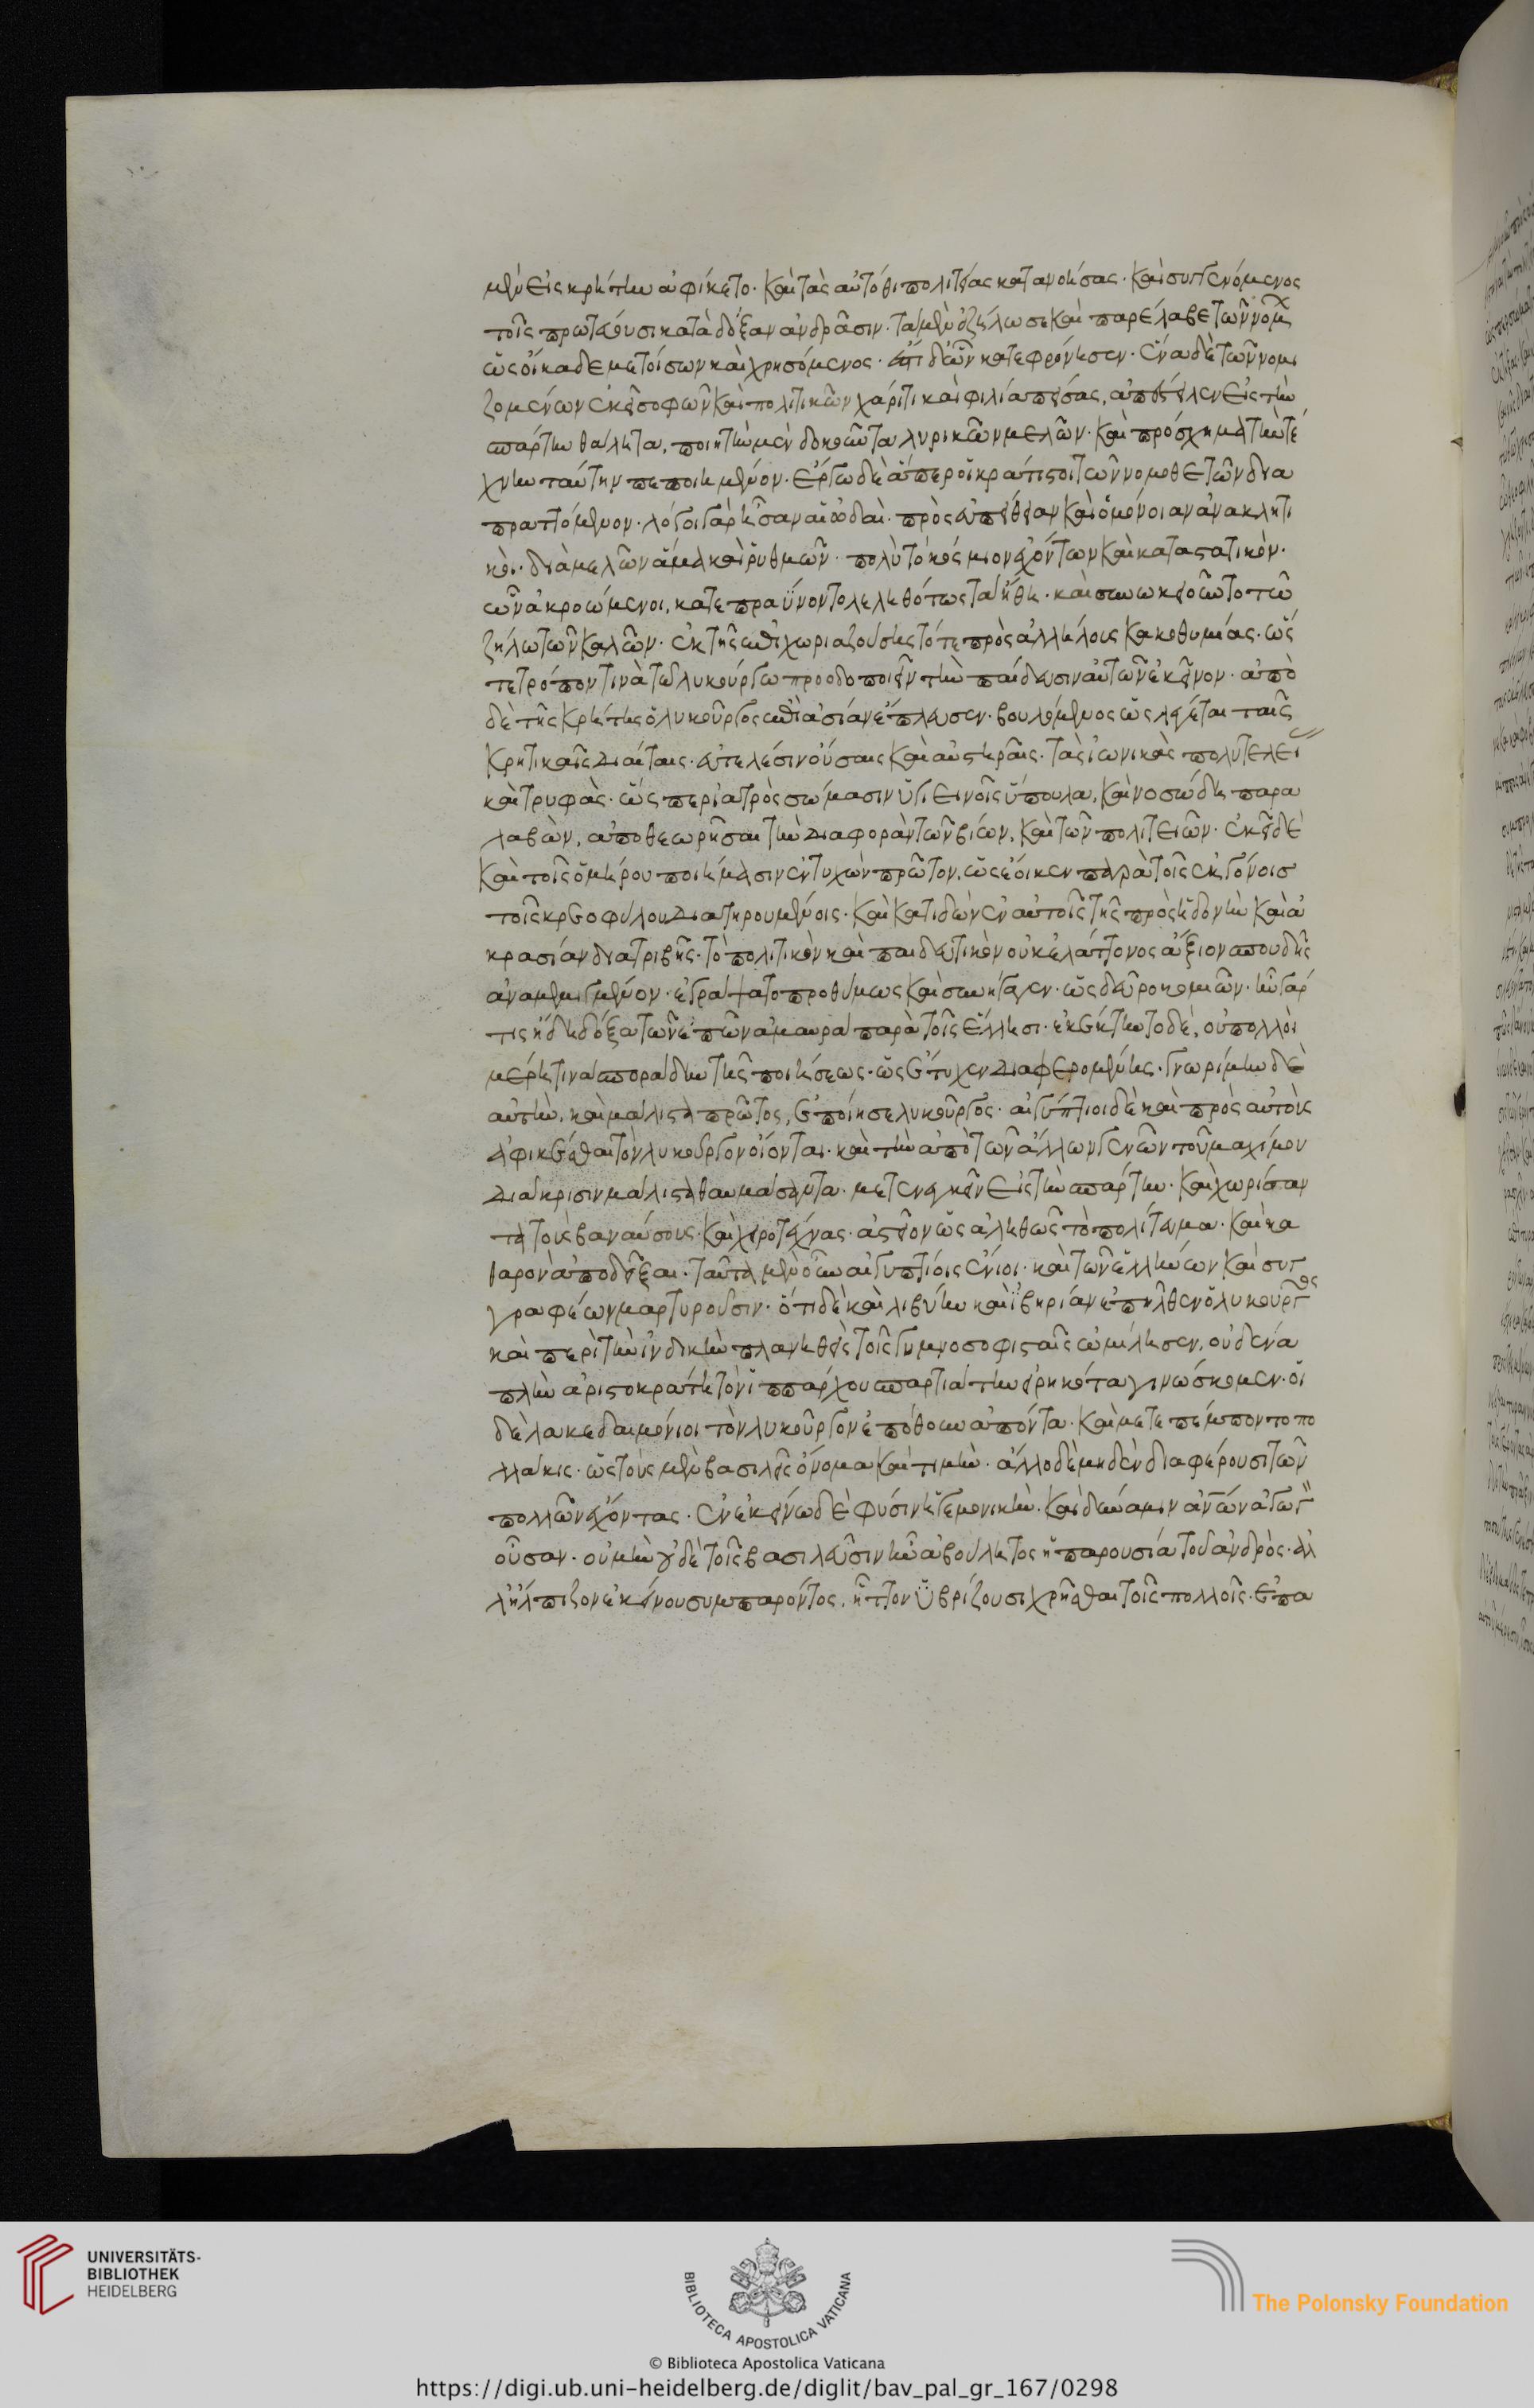 μὲν εἰς κρήτην ἀφίκετο· καὶ τὰς αὐτόθι πολιτείας κατανοήσας· καὶ συγγενόμενος
τοῖς πρωτεύουσι κατὰ δόξαν ἀνδράσιν· τὰ μὲν ἐζήλωσε καὶ παρέλαβε τῶν νόμ
ὡς οἴκαδε μετοίσων καὶ χρησόμενος· ἔστι δ' ὧν κατεφρόνησεν· ἕνα δὲ τῶν νομι
ζομένων ἐκεῖ σοφῶν καὶ πολιτικῶν χάριτι καὶ φιλία πείσας, ἀπέστειλεν εἰς τὴν
σπάρτην θάλητα, ποιητὴν μὲν δοκοῦντα λυρικῶν μελῶν· καὶ πρόσχημα τὴν τέ
χνην ταύτην πεποιημένον· ἔργω δὲ ἅπερ οἱ κράτιστοι τῶν νομοθετῶν δια
πραττόμενον· λόγοι γὰρ ἦσαν αἱ ὠδαὶ· πρὸς εὐπείθειαν καὶ ὁμόνοιαν ἀνακλητι
κοὶ· διὰ μελῶν ἅμα καὶ ῥυθμῶν· πολὺ τὸ κόσμιον ἐχόντων καὶ καταστατικὸν·
ὧν ἀκροώμενοι, κατεπραΰνοντο λεληθότως τὰ ἤθη· καὶ συνωκειοῦντο τῶ
ζήλω τῶν καλῶν· ἐκ τῆς ἐπιχωριαζούσης τότε πρὸς ἀλλήλους κακοθυμίας· ὥσ
τε τρόπον τινὰ τῶ λυκούργω προοδοποιεῖν τὴν παίδευσιν αὐτῶν ἐκεῖνον· ἀπὸ
δὲ τῆς κρήτης ὁ λυκοῦργος ἐπὶ ἀσίαν ἔπλευσεν· βουλόμενος ὡς λέγεται ταῖς
κρητικαῖς διαίταις· εὐτελέσιν οὔσαις καὶ αὐστηραῖς· τὰς ἰωνικὰς πολυτελεί
καὶ τρυφὰς· ὥσπερ ἰατρὸς σώμασιν ὑγιεινοῖς ὕπουλα, καὶ νοσώδη παρα
λαβὼν, ἀποθεωρῆσαι τὴν διαφορὰν τῶν βίων, καὶ τῶν πολιτειῶν· ἐκεῖ δὲ
καὶ τοῖς ὁμήρου ποιήμασιν ἐντυχὼν πρῶτον, ὡς ἔοικεν παρὰ τοῖς ἐκγόνοισ
τοῖς κρεοφύλου διατηρουμένοις· καὶ κατιδὼν ἐν αὐτοῖς τῆς πρὸς ἡδονὴν καὶ ἀ
κρασίαν διατριβῆς· τὸ πολιτικὸν καὶ παιδευτικὸν οὐκ ἐλάττονος ἄξιον σπουδῆς
ἀναμεμιγμένον· ἐγράψατο προθύμως καὶ συνήγαγεν· ὡς δεῦρο κομιῶν· ἦν γάρ
τις ἤδη δόξα τῶν ἐπῶν ἀμαυρὰ παρὰ τοῖς ἕλλησι· ἐκέκτηντο δὲ, οὐ πολλοὶ
μέρη τινὰ σποράδην τῆς ποιήσεως· ὡς ἔτυχεν διαφερομένης· γνωρίμην δὲ
αὐτὴν, καὶ μάλιστα πρῶτος, ἐποίησε λυκοῦργος· αἰγύπτιοι δὲ καὶ πρὸς αὐτοὺς
ἀφικέσθαι τὸν λυκοῦργον οἴονται· καὶ τὴν ἀπὸ τῶν ἄλλων γενῶν τοῦ μαχίμου
διάκρισιν μάλιστα θαυμάσαντα· μετενεγκεῖν εἰς τὴν σπάρτην· καὶ χωρίσαν
τα τοὺς βαναύσους· καὶ χειροτέχνας· ἀστεῖον ὡς ἀληθῶς τὸ πολίτευμα· καὶ κα
θαρὸν ἀποδεῖξαι· ταῦτα μὲν οὖν αἰγυπτίοις ἔνιοι· καὶ τῶν ἑλλήνων καὶ συγ
γραφέων μαρτυροῦσιν· ὅτι δὲ καὶ λιβύην καὶ ἰβηρίαν ἐπῆλθεν ὁ λυκοῦργος
καὶ περὶ τὴν ἰνδικὴν πλανηθεὶς τοῖς γυμνοσοφισταῖς ὡμίλησεν, οὐδένα
πλὴν ἀριστοκράτη τὸν ἱππάρχου σπαρτιάτην εἰρηκότα γινώσκομεν· οἱ
δὲ λακεδαιμόνιοι τὸν λυκοῦργον ἐπόθουν ἀπόντα· καὶ μετεπέμποντο πο
λλάκις· ὡς τοὺς μὲν βασιλεῖς ὄνομα καὶ τιμὴν· ἄλλο δὲ μηδὲν διαφέρουσι τῶν
πολλῶν ἔχοντας· ἐν ἐκείνω δὲ φύσιν ἡγεμονικὴν· καὶ δύναμιν ἀν̅ων̅ ἀγωγ
οὖσαν· οὐ μὴν οὐδὲ τοῖς βασιλεῦσιν ἦν ἀβούλητος ἡ παρουσία τοῦ ἀνδρὸς· ἀλ
λ' ἤλπιζον ἐκείνου συμπαρόντος, ἧττον ὑβρίζουσι χρῆσθαι τοῖς πολλοῖς· ἐπα
UNIVERSITÄTS-
BIBLIOTHEK
HEIDELBERG
BIBLIOTECA APOSTOLICA VATICANA
The Polonsky Foundation
© Biblioteca Apostolica Vaticana
https://digi.ub.uni-heidelberg.de/diglit/bav_pal_gr_167/0298